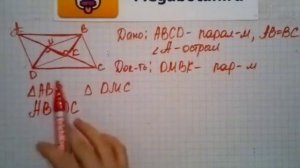 Megabotan
Дано: ABCD- парал-м, AB=BC
∠A-острый
Док-ть: DMBK- пар-м
A B
M K
D C
△AB △ DMC
AB C